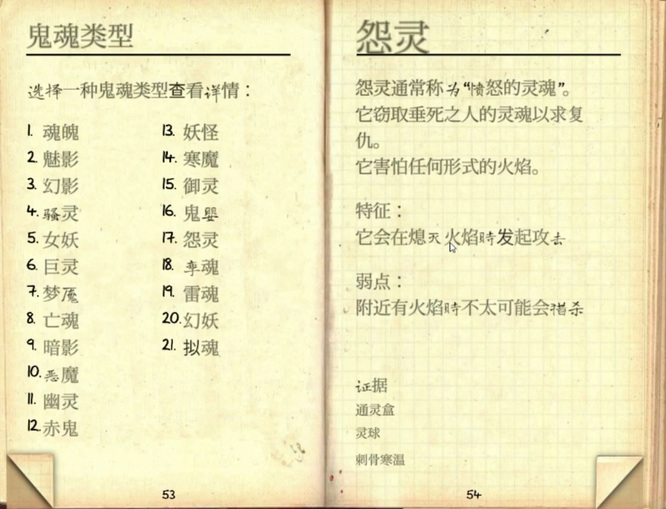 鬼魂类型
选择一种鬼魂类型查看详情：
1. 魂魄
2. 魅影
3. 幻影
4. 骚灵
5. 女妖
6. 巨灵
7. 梦魇
8. 亡魂
9. 暗影
10. 恶魔
11. 幽灵
12. 赤鬼
13. 妖怪
14. 寒魔
15. 御灵
16. 鬼婴
17. 怨灵
18. 孪魂
19. 雷魂
20. 幻妖
21. 拟魂
53
怨灵
怨灵通常称为“愤怒的灵魂”。
它窃取垂死之人的灵魂以求复
仇。
它害怕任何形式的火焰。
特征：
它会在熄灭火焰時发起攻击
弱点：
附近有火焰時不太可能会猎杀
证据
通灵盒
灵球
刺骨寒温
54